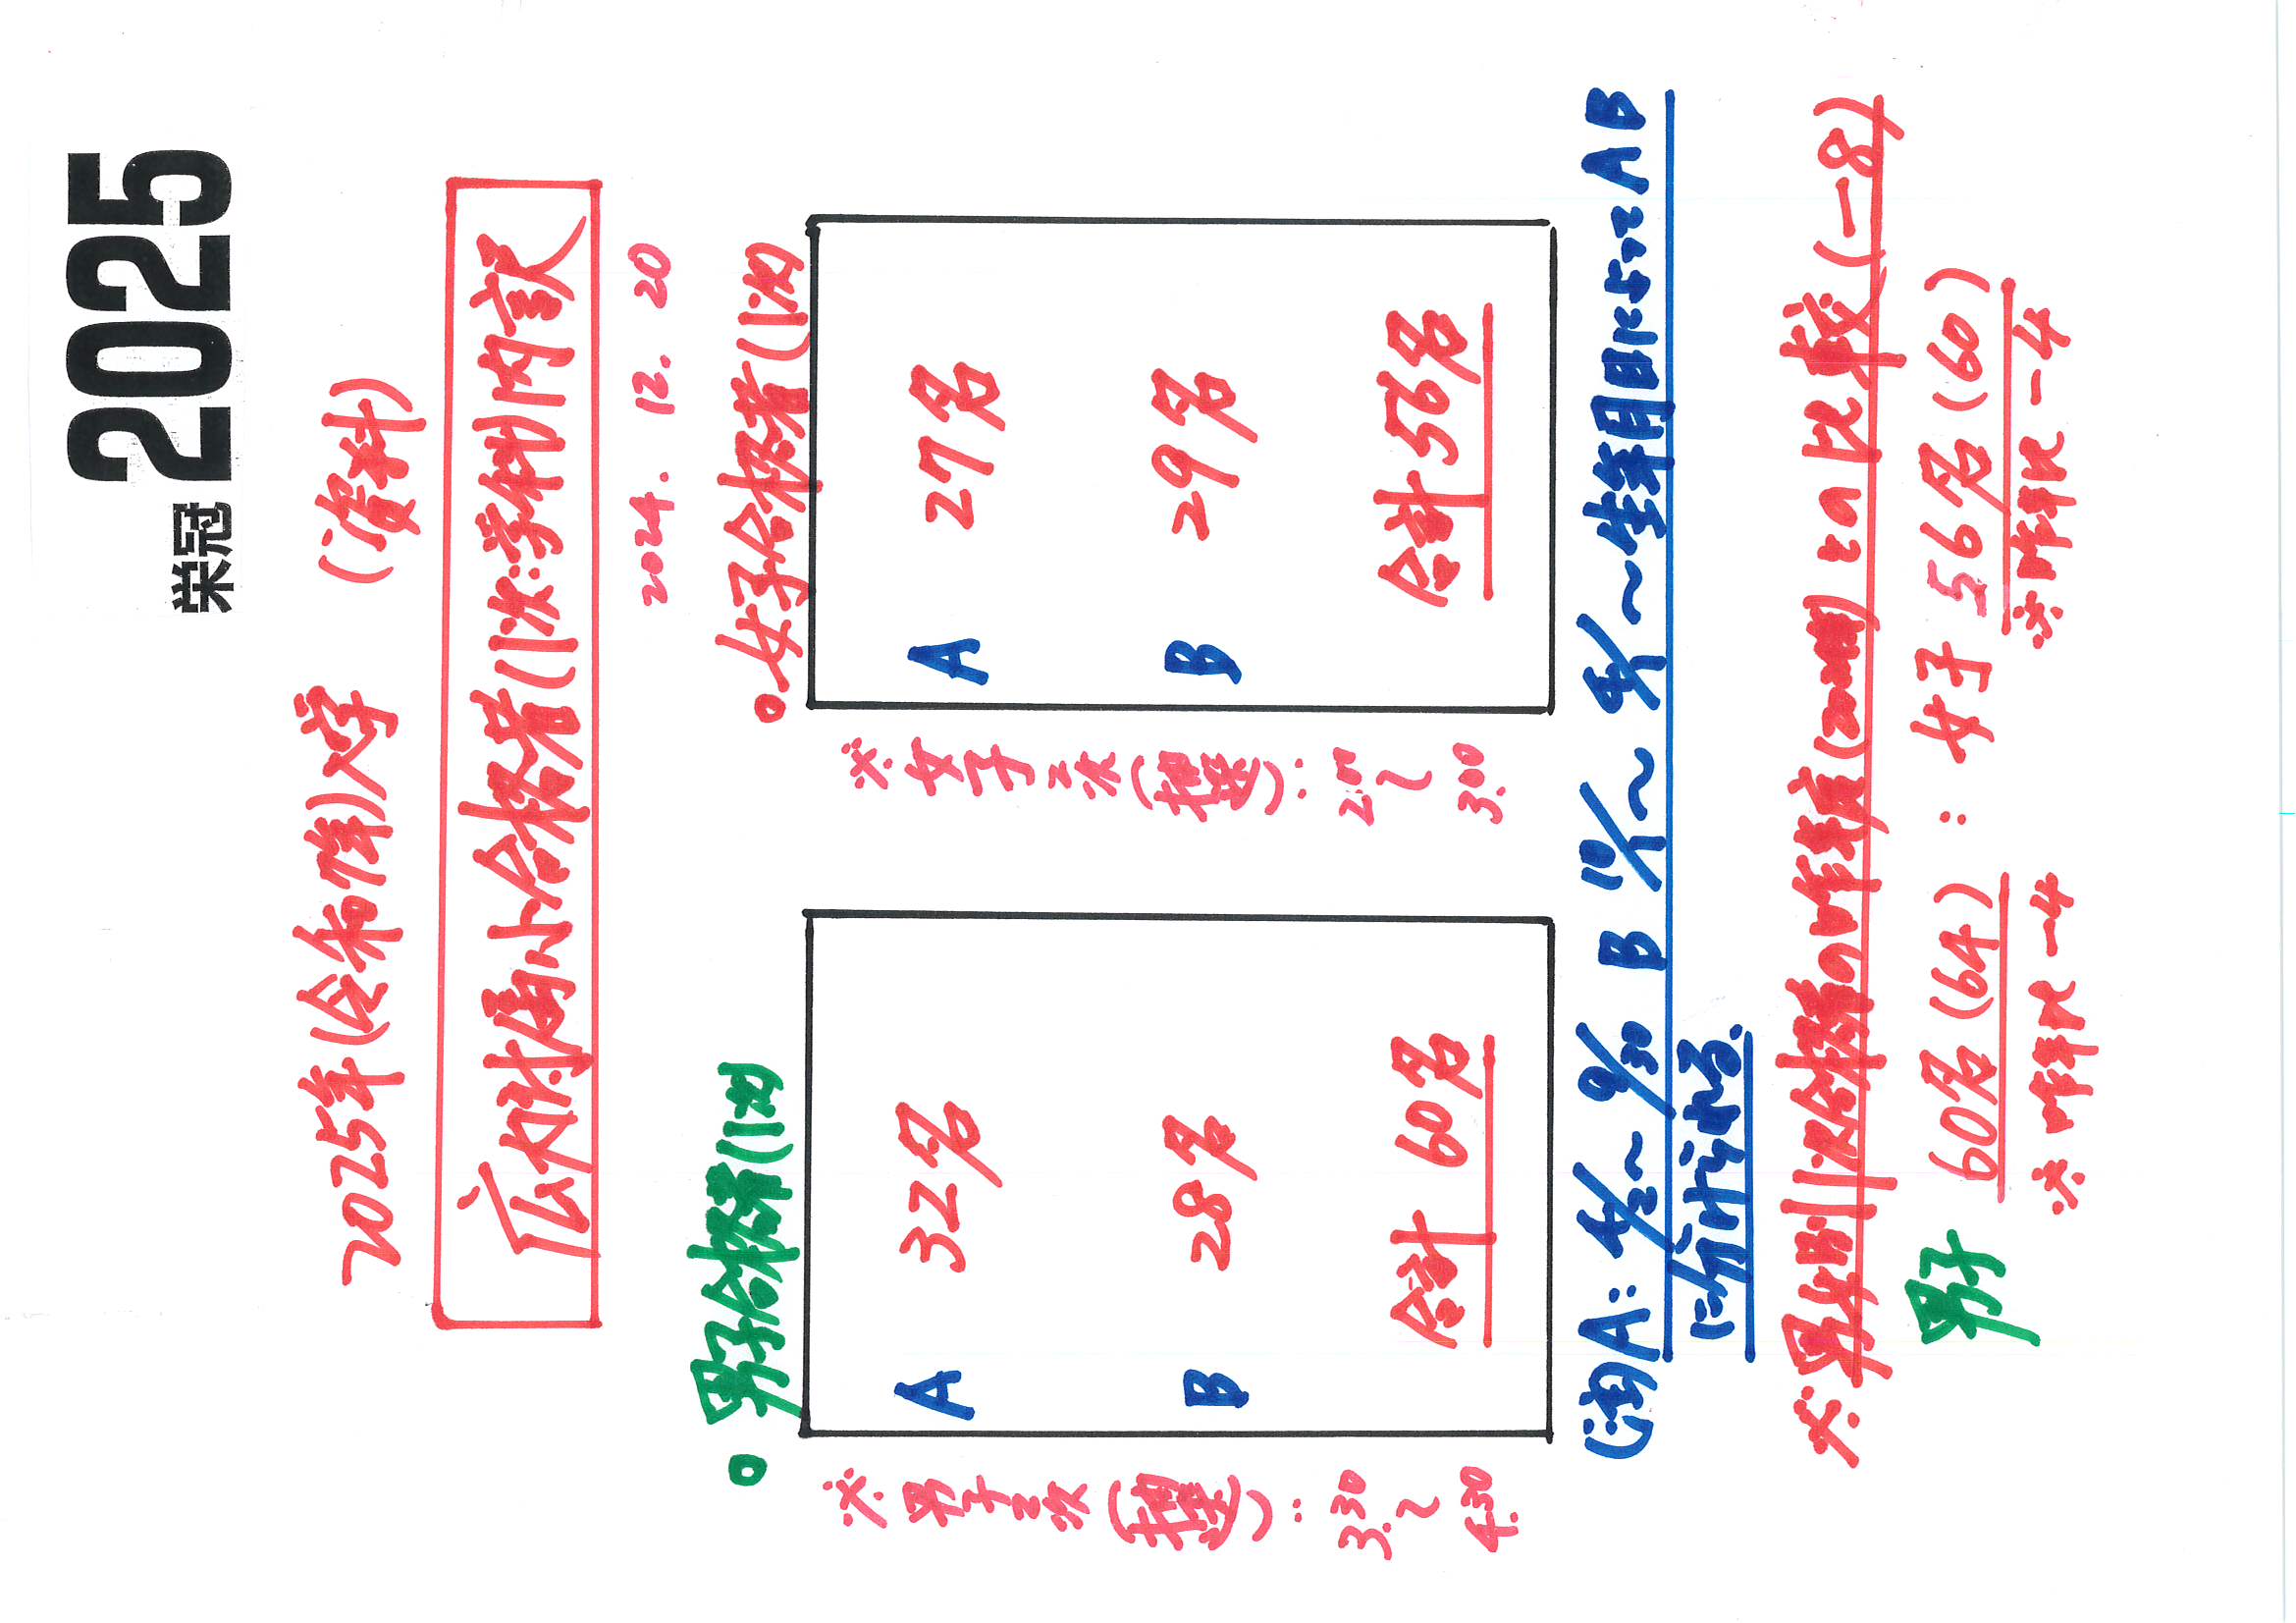 栄冠 2025
2025年(令和7年)入学 (資料)
広大附属小合格者(1次:考査別)内訳
2024. 12. 20
○男子合格者(1次)
A 32名
B 28名
合計 60名
※男子二次(抽選):3.30〜4.30
○女子合格者(1次)
A 27名
B 29名
合計 56名
※女子二次(抽選):2.00〜3.00
(注)A:4/2〜9/30 B 10/1〜4/1〜生年月日によってAB
に分けられる.
※男女別1次合格者の昨年度(2024年)との比較(-8)
男子 60名(64) : 女子 56名(60)
※昨年比 -4 ※昨年比 -4